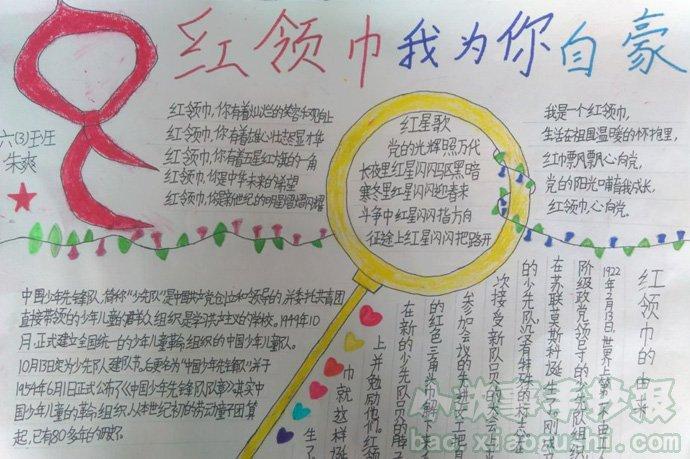 红领巾我为你自豪
六(3)班
朱爽
红领巾,你有着灿烂的笑容
红领巾,你有着雄心壮志显才华
红领巾,你有着五星红旗的一角
红领巾,你是中华未来的希望
红领巾,你是新世纪的明星
红星歌
党的光辉照万代
长夜里红星闪闪驱黑暗
寒冬里红星闪闪迎春来
斗争中红星闪闪指方向
征途上红星闪闪把路开
我是一个红领巾,
生活在祖国温暖的怀抱里,
红巾飘飘心向党,
党的阳光哺育我成长,
红领巾,心向党。
中国少年先锋队,简称"少先队"是中国共产党创立和领导的,并委托共青团
直接带领的少年儿童的群众组织,是学习共产主义的学校。1949年10
月,正式建立全国统一的少年儿童革命组织的中国少年儿童队。
10月13日定为少先队建队节,后更名为"中国少年先锋队"并于
1954年6月1日正式公布了《中国少年先锋队队章》其实中
国少年儿童的革命组织从本世纪初的劳动童子团算
起,已有80多年的历史了。
红领巾的由来
1922年2月13日,世界上第一个
阶级政党领导下的
在苏联莫斯科诞生了,刚
的少先队,没有特殊的标志
次接受新队员的大
参加会议的先进女工把
的红色三角头巾解下
在新的少先队员的脖子
上并勉励他们。红领
巾就这样诞
生了
小故事手抄报
bao.xiaogushi.com